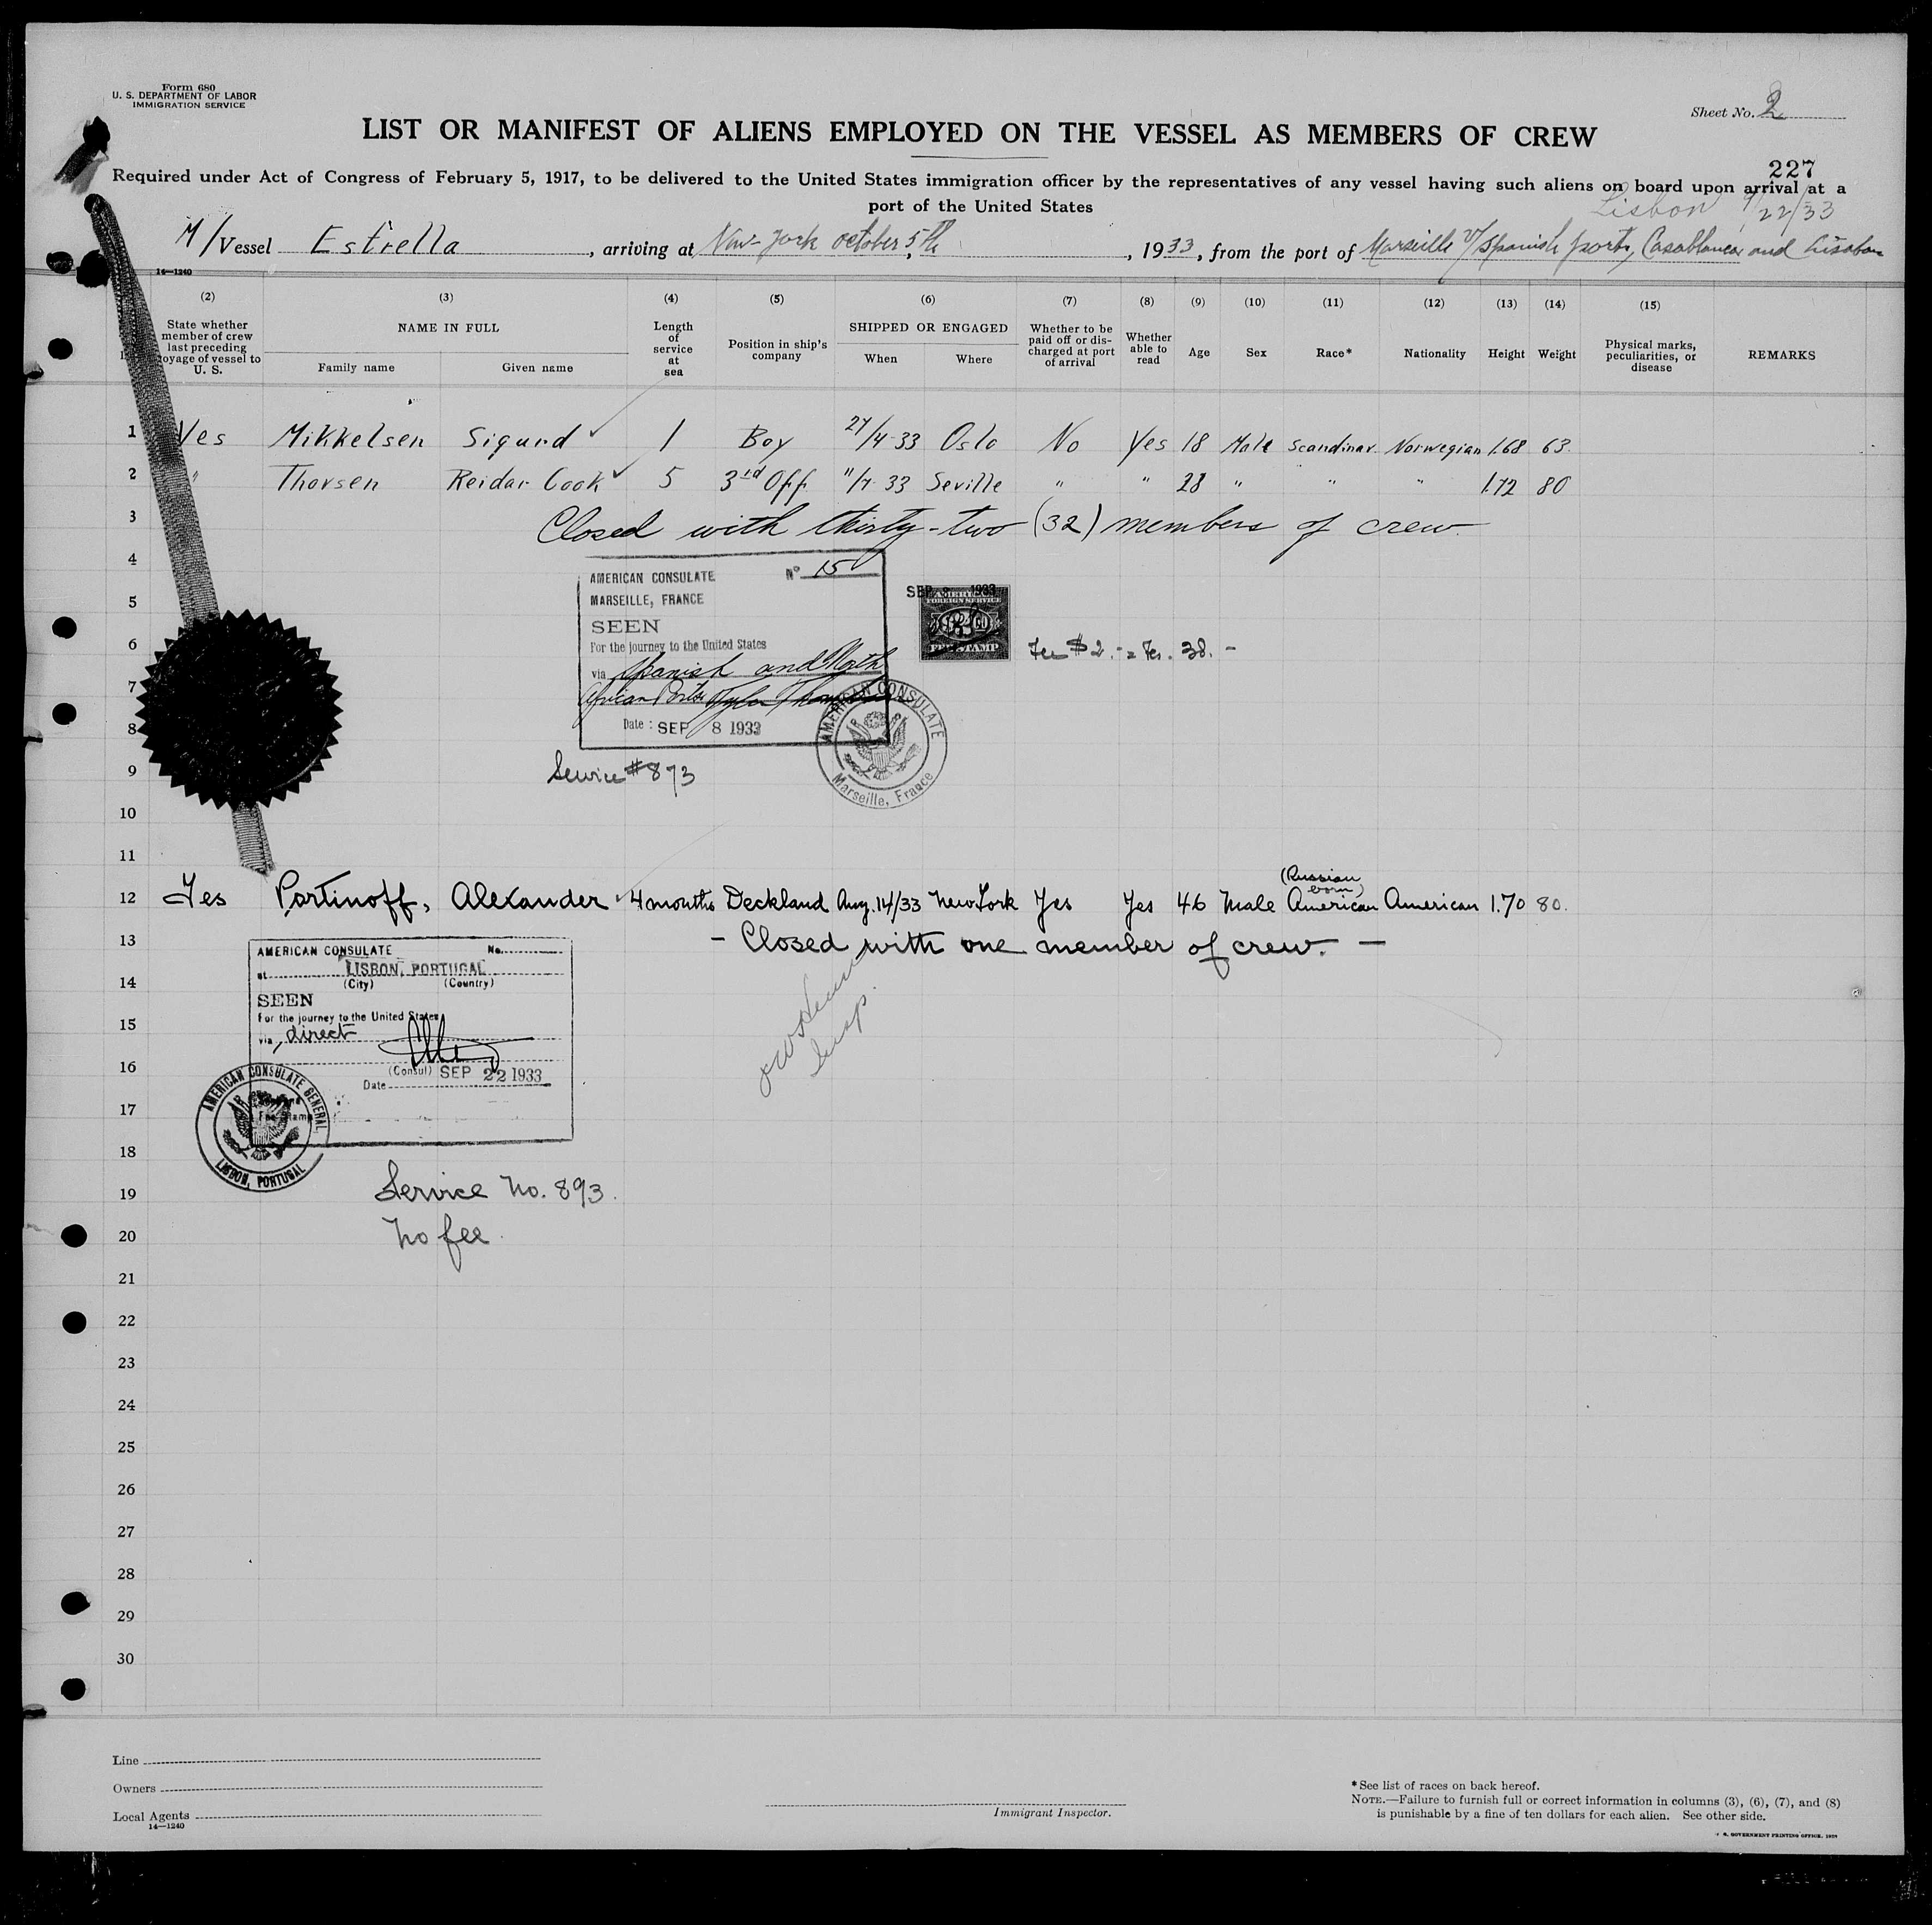 Form 680
U. S. DEPARTMENT OF LABOR
IMMIGRATION SERVICE
Sheet No. 2
LIST OR MANIFEST OF ALIENS EMPLOYED ON THE VESSEL AS MEMBERS OF CREW
227
Required under Act of Congress of February 5, 1917, to be delivered to the United States immigration officer by the representatives of any vessel having such aliens on board upon arrival at a
port of the United States
Lisbon 9/22/33
M/Vessel Estrella, arriving at New-York october 5th, 1933, from the port of Marseille v/Spanish ports, Casablanca and Lisabon
14—1240
(2) (3) (4) (5) (6) (7) (8) (9) (10) (11) (12) (13) (14) (15)
State whether member of crew last preceding voyage of vessel to U. S.
NAME IN FULL
Family name Given name
Length of service at sea
Position in ship's company
SHIPPED OR ENGAGED
When Where
Whether to be paid off or discharged at port of arrival
Whether able to read
Age Sex Race* Nationality Height Weight
Physical marks, peculiarities, or disease
REMARKS
1 Yes Mikkelsen Sigurd 1 Boy 27/4-33 Oslo No Yes 18 Male Scandinav. Norwegian 1.68 63.
2 " Thorsen Reidar Cook 5 3rd Off. 11/7-33 Seville " " 28 " " " 1.72 80
3 Closed with thirty-two (32) members of crew.
4
5
6
7
8
9
10
11
AMERICAN CONSULATE No 15
MARSEILLE, FRANCE
SEEN
For the journey to the United States
via Spanish and North
African Ports
Date: SEP 8 1933
SEP 1933
AMERICAN
FOREIGN SERVICE
FEE STAMP
Fee $2.- = Frs. 38.-
AMERICAN CONSULATE
Marseille, France
Service #873
12 Yes Portinoff, Alexander 4 months Deckhand Aug. 14/33 New York Yes Yes 46 Male (Russian born) American American 1.70 80.
13 - Closed with one member of crew. -
14
15
16
17
18
19
20
21
22
23
24
25
26
27
28
29
30
AMERICAN CONSULATE No.
at LISBON, PORTUGAL
(City) (Country)
SEEN
For the journey to the United States
via, direct
(Consul) SEP 22 1933
Date
AMERICAN CONSULATE GENERAL
LISBON, PORTUGAL
Insp.
Service No. 893.
No fee.
Line
Owners
Local Agents
14—1240
Immigrant Inspector.
*See list of races on back hereof.
NOTE.—Failure to furnish full or correct information in columns (3), (6), (7), and (8)
is punishable by a fine of ten dollars for each alien. See other side.